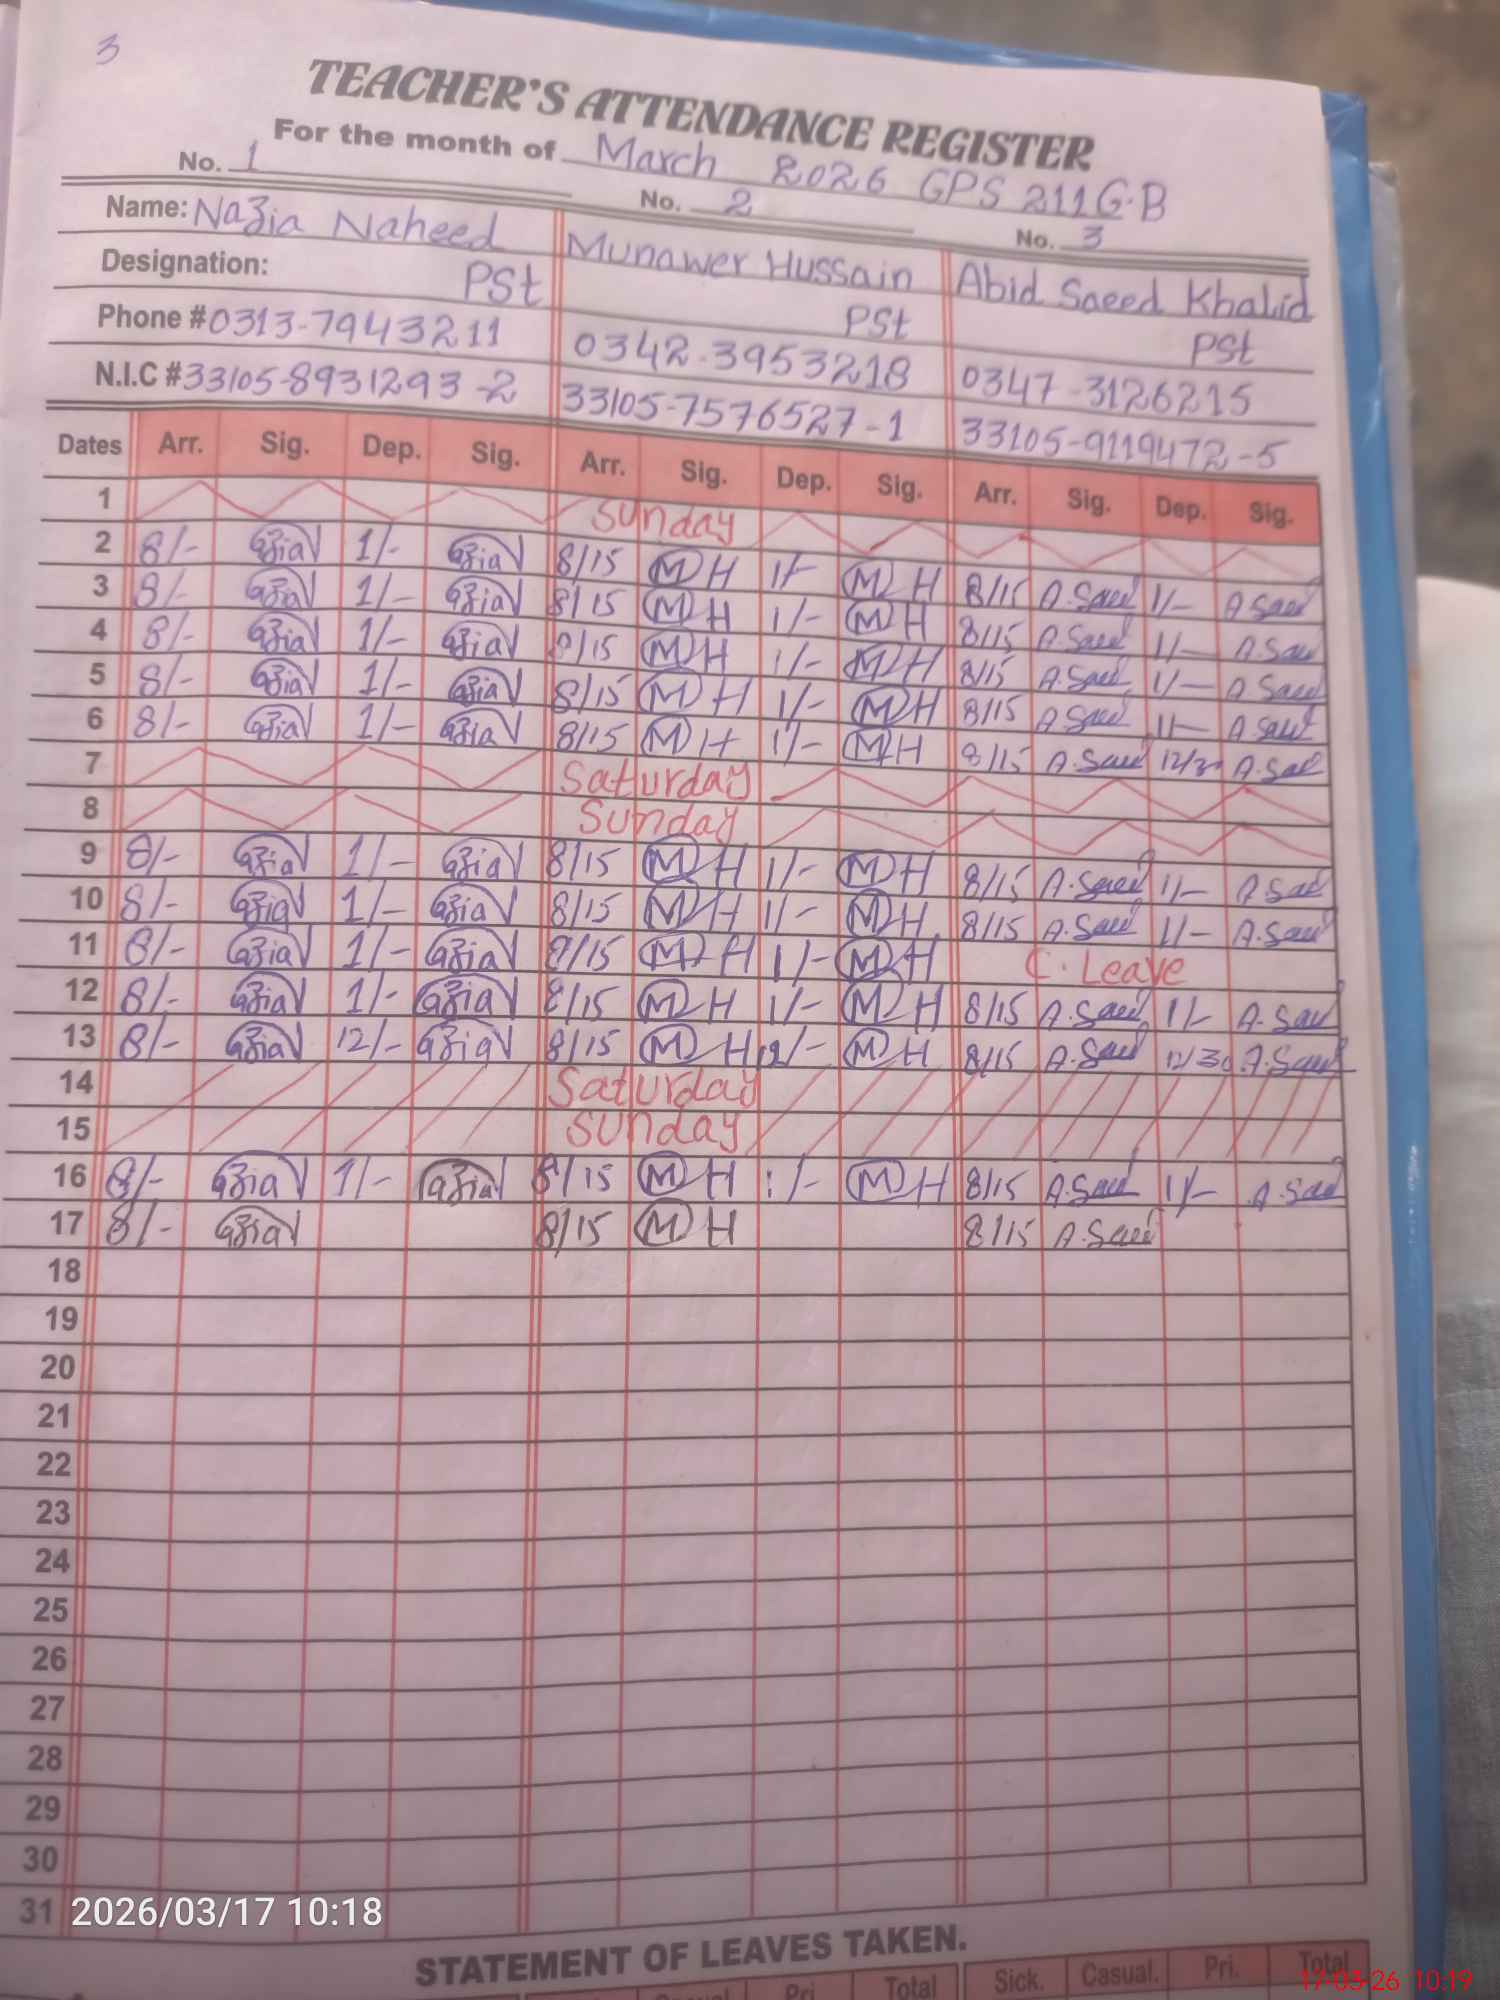 3
TEACHER'S ATTENDANCE REGISTER
For the month of March 2026 GPS 211 G.B
No. 1 No. 2 No. 3
Name: Nazia Naheed Munawer Hussain Abid Saeed Khalid
Designation: PSt PSt PSt
Phone # 0313-7943211 0342-3953218 0347-3126215
N.I.C # 33105-8931293-2 33105-7576527-1 33105-9119472-5
Dates Arr. Sig. Dep. Sig. Arr. Sig. Dep. Sig. Arr. Sig. Dep. Sig.
1 Sunday
2 8/- 1/- 8/15 MH 1/- MH 8/15 A.Saeed 1/- A.Saeed
3 8/- 1/- 8/15 MH 1/- MH 8/15 A.Saeed 1/- A.Saeed
4 8/- 1/- 8/15 MH 1/- MH 8/15 A.Saeed 1/- A.Saeed
5 8/- 1/- 8/15 MH 1/- MH 8/15 A.Saeed 1/- A.Saeed
6 8/- 1/- 8/15 MH 1/- MH 8/15 A.Saeed 12/30 A.Saeed
7 Saturday
8 Sunday
9 8/- 1/- 8/15 MH 1/- MH 8/15 A.Saeed 1/- A.Saeed
10 8/- 1/- 8/15 MH 1/- MH 8/15 A.Saeed 1/- A.Saeed
11 8/- 1/- 8/15 MH 1/- MH C. Leave
12 8/- 1/- 8/15 MH 1/- MH 8/15 A.Saeed 1/- A.Saeed
13 8/- 12/- 8/15 MH 12/- MH 8/15 A.Saeed 12/30 A.Saeed
14 Saturday
15 Sunday
16 8/- 1/- 8/15 MH 1/- MH 8/15 A.Saeed 1/- A.Saeed
17 8/- 8/15 MH 8/15 A.Saeed
18
19
20
21
22
23
24
25
26
27
28
29
30
31 2026/03/17 10:18
STATEMENT OF LEAVES TAKEN.
Pri. Total Sick. Casual. Pri. Total
17-03-26 10:19